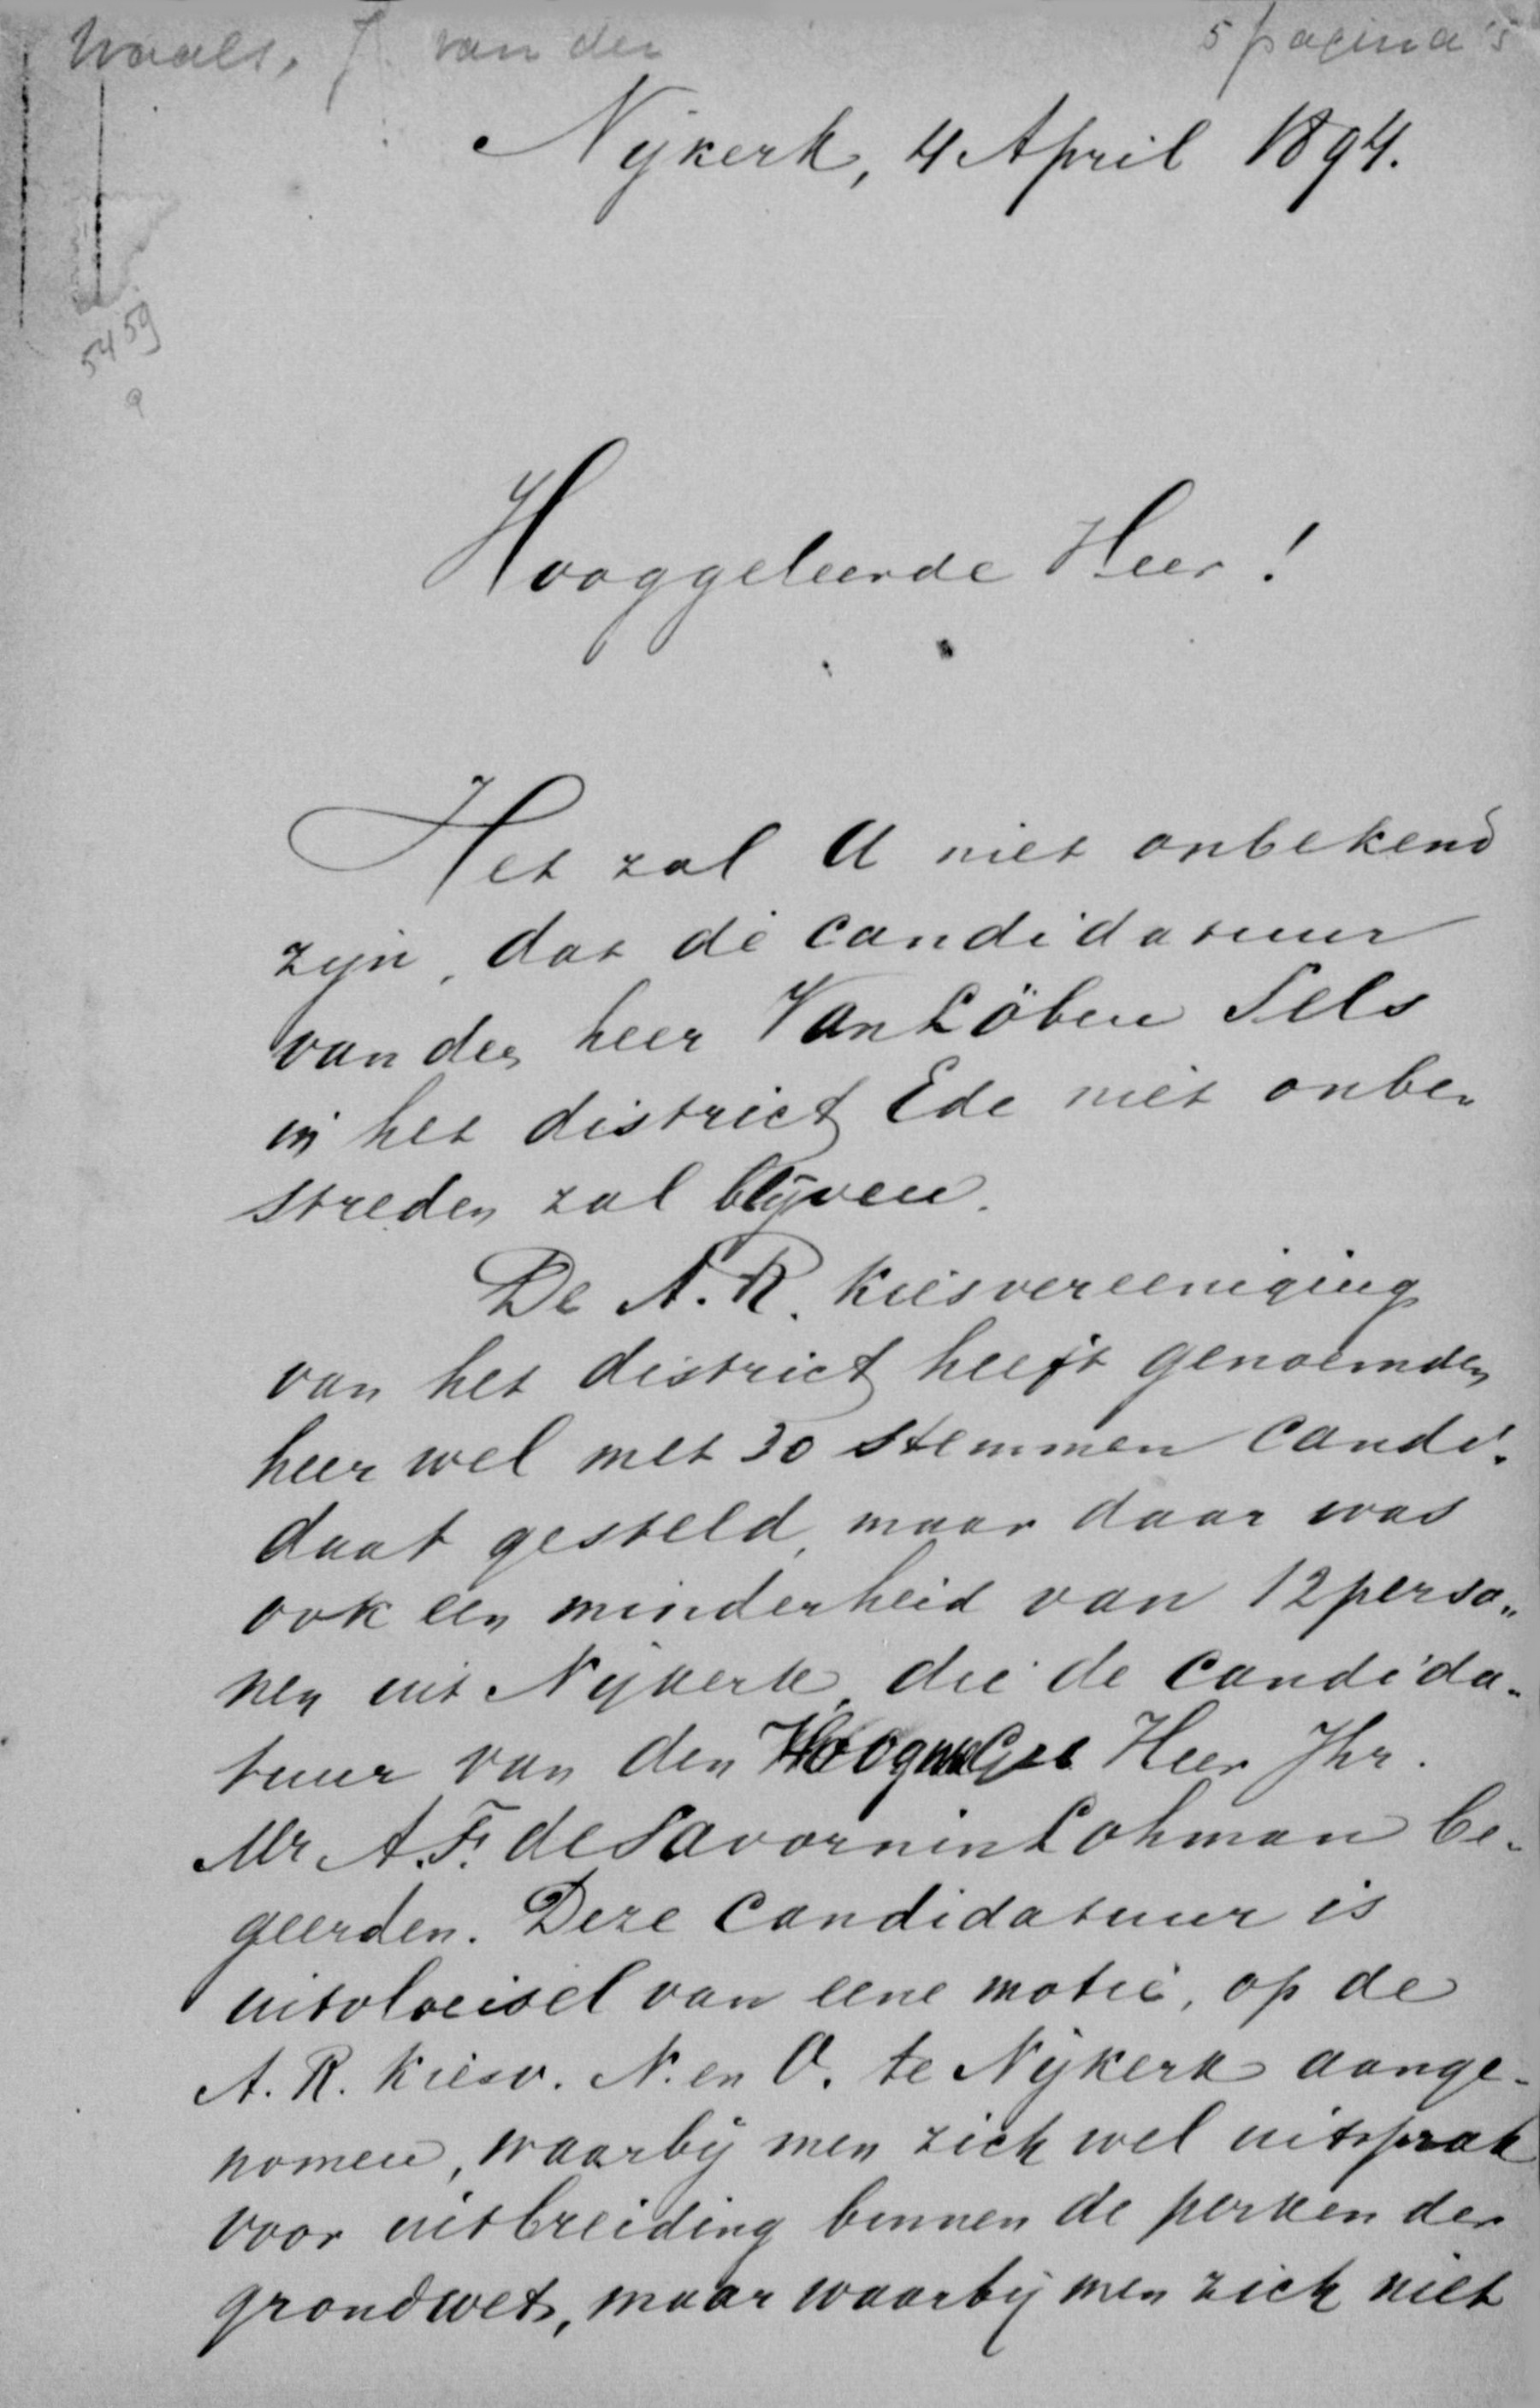 Waals, J. van der
5 pagina's
Nijkerk, 4 April 1894.
5459
a
Hooggeleerde Heer!
Het zal U niet onbekend
zijn, dat de candidatuur
van den heer Van Löben Sels
in het district Ede niet onbe„
streden zal blijven.
De A. R. kiesvereeniging
van het district heeft genoemden
heer wel met 30 stemmen candi„
daat gesteld, maar daar was
ook een minderheid van 12 perso„
nen uit Nijkerk, die de candida„
tuur van den Heer Jhr.
Mr A. F. de Savornin Lohman be„
geerden. Deze candidatuur is
uitvloeisel van eene motie, op de
A. R. Kiesv. N. en O. te Nijkerk aange„
nomen, waarbij men zich wel uitsprak
voor uitbreiding binnen de perken der
grondwet, maar waarbij men zich niet